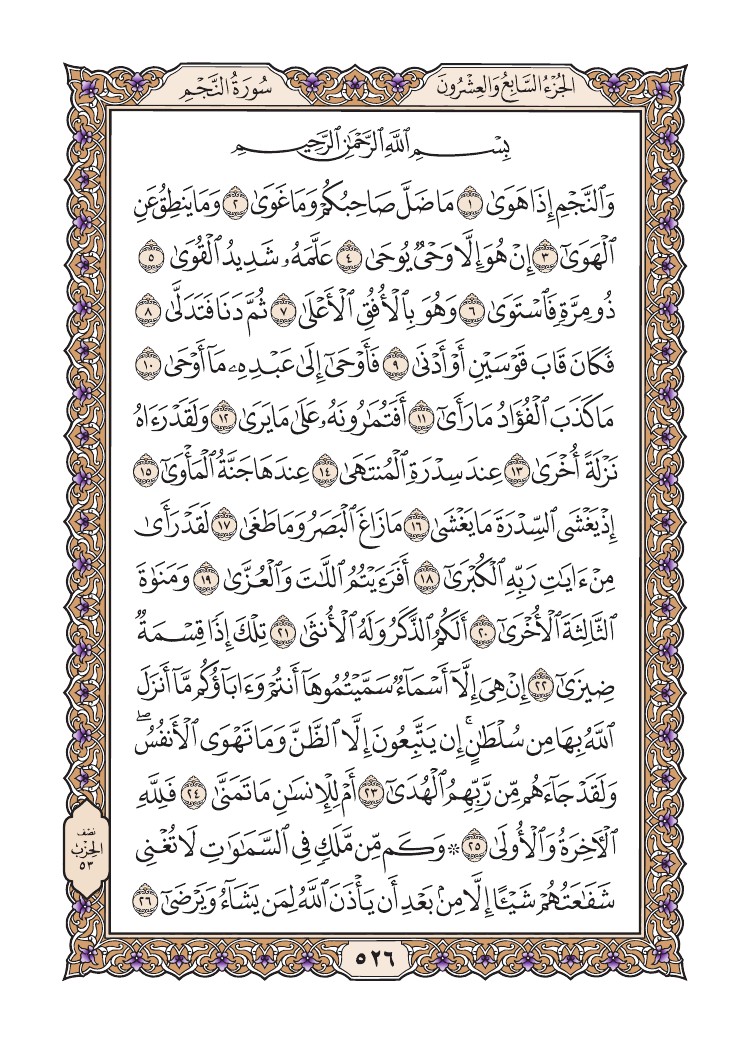 سُورَةُ النَّجْمِ
الجُزْءُ السَّابِعُ وَالعِشْرُونَ
بِسْمِ اللَّهِ الرَّحْمَٰنِ الرَّحِيمِ
وَالنَّجْمِ إِذَا هَوَىٰ ١ مَا ضَلَّ صَاحِبُكُمْ وَمَا غَوَىٰ ٢ وَمَا يَنطِقُ عَنِ
الْهَوَىٰٓ ٣ إِنْ هُوَ إِلَّا وَحْيٌ يُوحَىٰ ٤ عَلَّمَهُۥ شَدِيدُ الْقُوَىٰ ٥
ذُو مِرَّةٍ فَاسْتَوَىٰ ٦ وَهُوَ بِالْأُفُقِ الْأَعْلَىٰ ٧ ثُمَّ دَنَا فَتَدَلَّىٰ ٨
فَكَانَ قَابَ قَوْسَيْنِ أَوْ أَدْنَىٰ ٩ فَأَوْحَىٰٓ إِلَىٰ عَبْدِهِۦ مَآ أَوْحَىٰ ١٠
مَا كَذَبَ الْفُؤَادُ مَا رَأَىٰٓ ١١ أَفَتُمَٰرُونَهُۥ عَلَىٰ مَا يَرَىٰ ١٢ وَلَقَدْ رَءَاهُ
نَزْلَةً أُخْرَىٰ ١٣ عِندَ سِدْرَةِ الْمُنتَهَىٰ ١٤ عِندَهَا جَنَّةُ الْمَأْوَىٰٓ ١٥
إِذْ يَغْشَى السِّدْرَةَ مَا يَغْشَىٰ ١٦ مَا زَاغَ الْبَصَرُ وَمَا طَغَىٰ ١٧ لَقَدْ رَأَىٰ
مِنْ ءَايَٰتِ رَبِّهِ الْكُبْرَىٰٓ ١٨ أَفَرَءَيْتُمُ اللَّٰتَ وَالْعُزَّىٰ ١٩ وَمَنَوٰةَ
الثَّالِثَةَ الْأُخْرَىٰٓ ٢٠ أَلَكُمُ الذَّكَرُ وَلَهُ الْأُنثَىٰ ٢١ تِلْكَ إِذًا قِسْمَةٌ
ضِيزَىٰٓ ٢٢ إِنْ هِيَ إِلَّآ أَسْمَآءٌ سَمَّيْتُمُوهَآ أَنتُمْ وَءَابَآؤُكُم مَّآ أَنزَلَ
اللَّهُ بِهَا مِن سُلْطَٰنٍ ۚ إِن يَتَّبِعُونَ إِلَّا الظَّنَّ وَمَا تَهْوَى الْأَنفُسُ ۖ
وَلَقَدْ جَآءَهُم مِّن رَّبِّهِمُ الْهُدَىٰٓ ٢٣ أَمْ لِلْإِنسَٰنِ مَا تَمَنَّىٰ ٢٤ فَلِلَّهِ
الْأٓخِرَةُ وَالْأُولَىٰ ٢٥ ۞ وَكَم مِّن مَّلَكٍ فِي السَّمَٰوَٰتِ لَا تُغْنِي
شَفَٰعَتُهُمْ شَيْـًٔا إِلَّا مِنۢ بَعْدِ أَن يَأْذَنَ اللَّهُ لِمَن يَشَآءُ وَيَرْضَىٰٓ ٢٦
نصف
الحزب
٥٣
٥٢٦